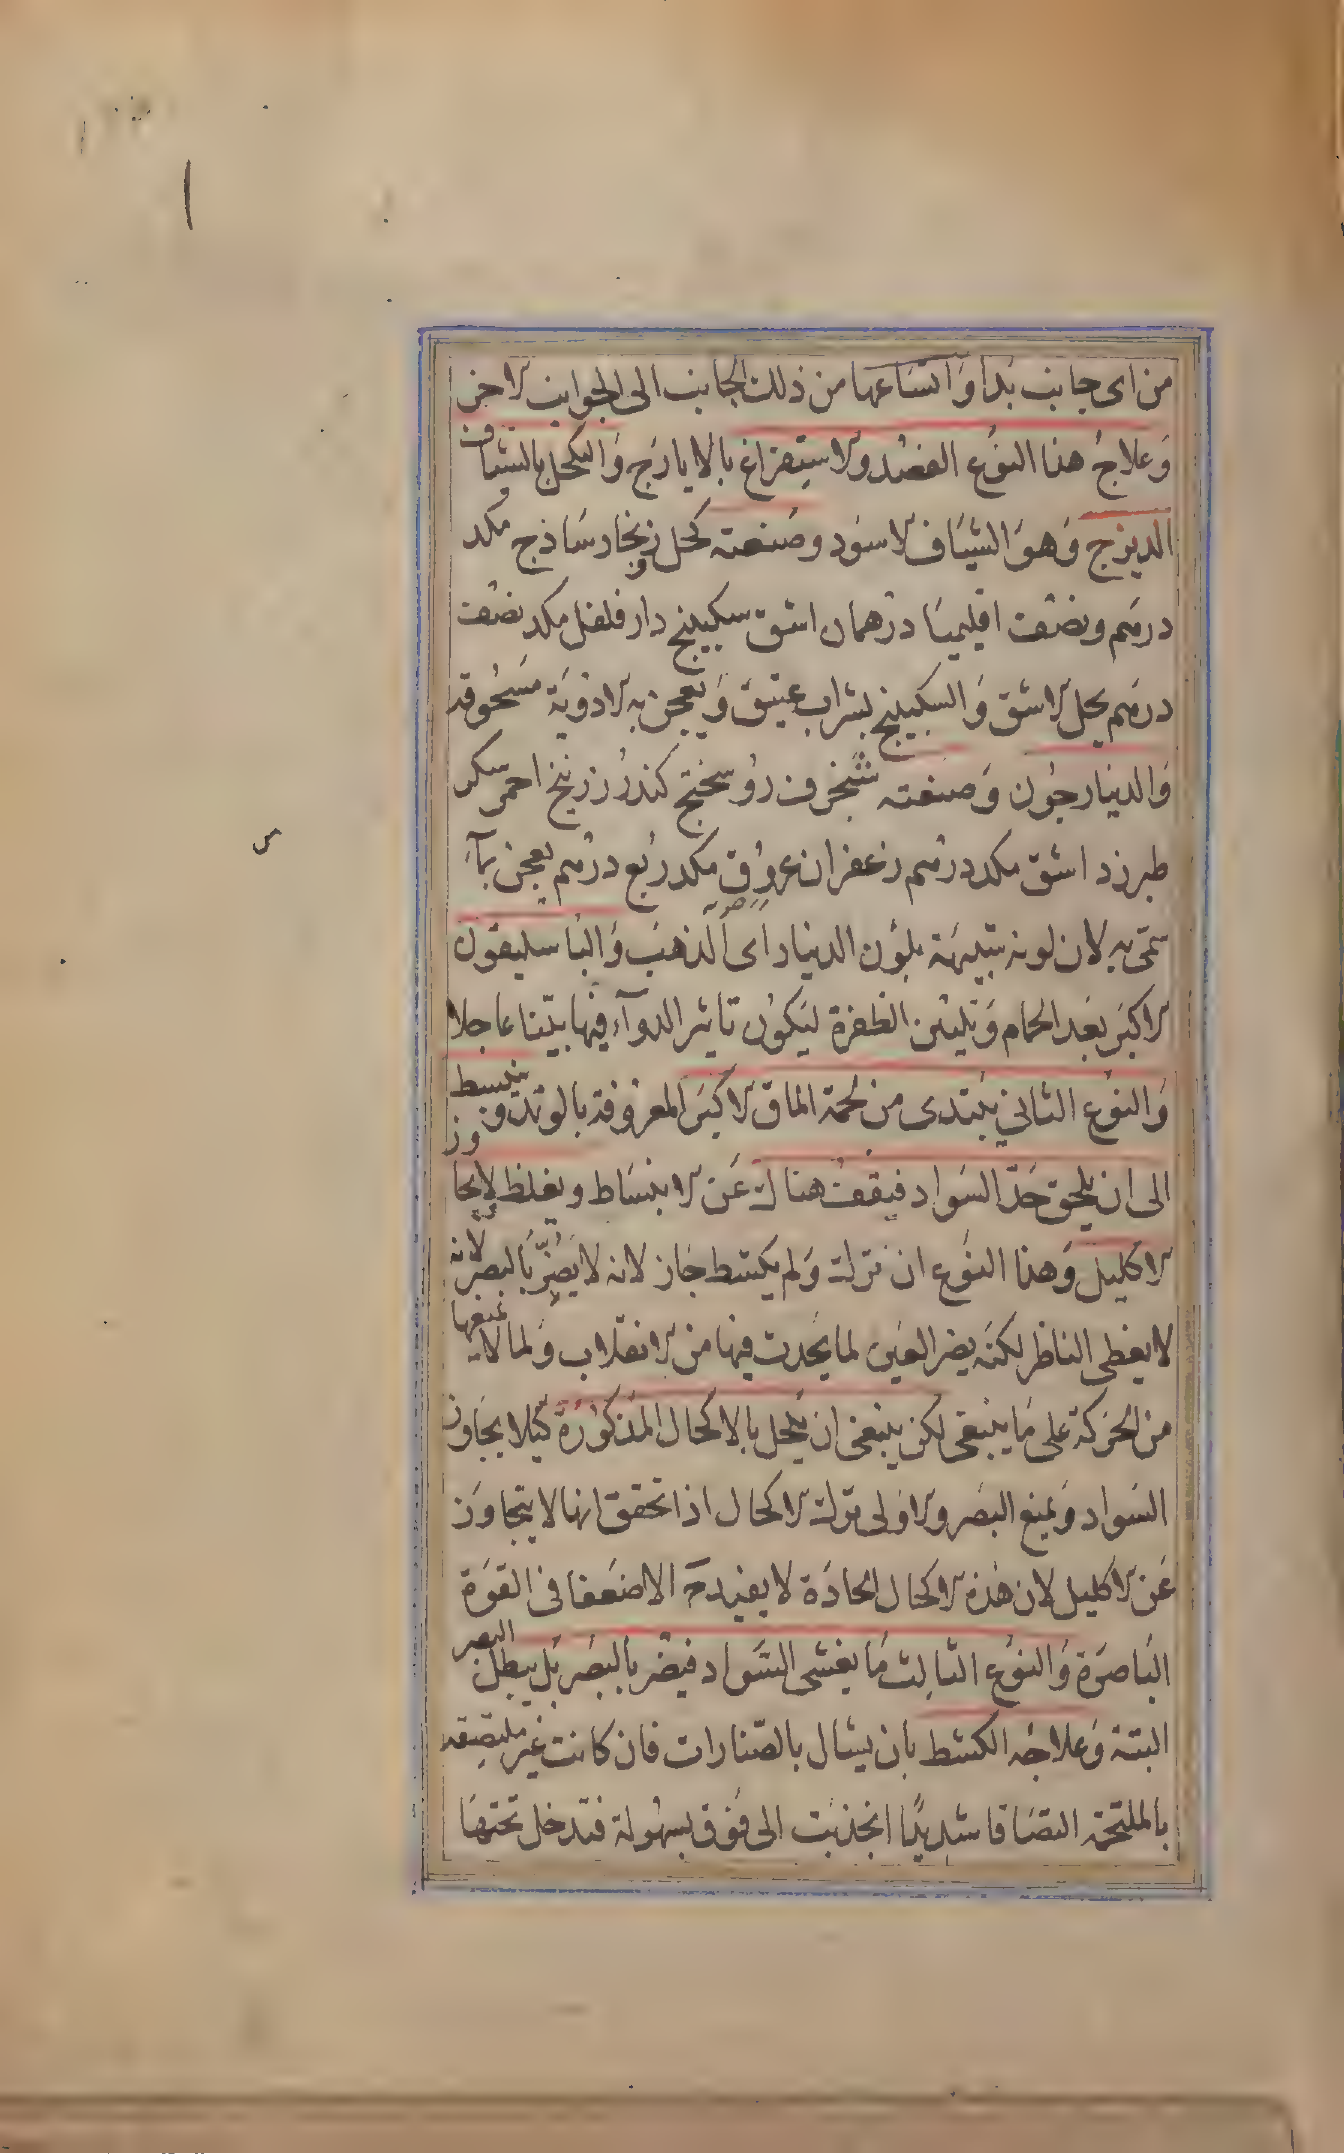 من اى جانب بدأ واتساعها من ذلك الجانب الى الجوانب الاخر
وعلاج هذا النوع الفصد والاستفراغ بالايارج والكحل بالشياف
الديزج وهو الشياف الاسود وصنعته كحل وزنجار ساذج مكد
درهم ونصف اقليميا درهمان اشق سكبينج دار فلفل مكد نصف
درهم يحل الاشق والسكبينج بشراب عتيق ويعجن به الادوية مسحوقة
والدينارجون وصنعته شنجرف روسختج كندر زرنيخ احمر سكر
طبرزد اشق مكد درهم زعفران عروق مكد ربع درهم يعجن بماء
سمى به لان لونه شبيهة بلون الدينار اى الذهب والباسليقون
الاكبر بعد الحمام وتليين الظفرة ليكون تاثير الدوآء فيها بيّنا عاجلا
والنوع الثانى يبتدى من لحمة الماق الاكبر المعروفة بالوتدة وينبسط
الى ان يلحق حدّ السواد فيقف هناك عن الانبساط ويغلظ لايجاوز
الاكليل وهذا النوع ان ترك ولم يكشط جاز لانه لا يضرّ بالبصر لانه
لا يغطى الناظر لكنه يضر العين لما يحدث فيها من الانقلاب ولما لا يمنعها
من الحركة على ما ينبغى لكن ينبغى ان يكحل بالاكحال المذكورة كيلا يجاوز
السواد ويمنع البصر والاولى ترك الاكحال اذا تحقق انها لا يتجاوز
عن الاكليل لان هذه الاكحال الحادة لا يفيد ح الا ضعفا فى القوة
الباصرة والنوع الثالث ما يغشى السواد فيضر بالبصر بل يبطل البصر
البتة وعلاجه الكشط بان يشال بالصنارات فان كانت غير ملتصقة
بالملتحمة التصاقا شديدا انجذبت الى فوق بسهولة فتدخل تحتها